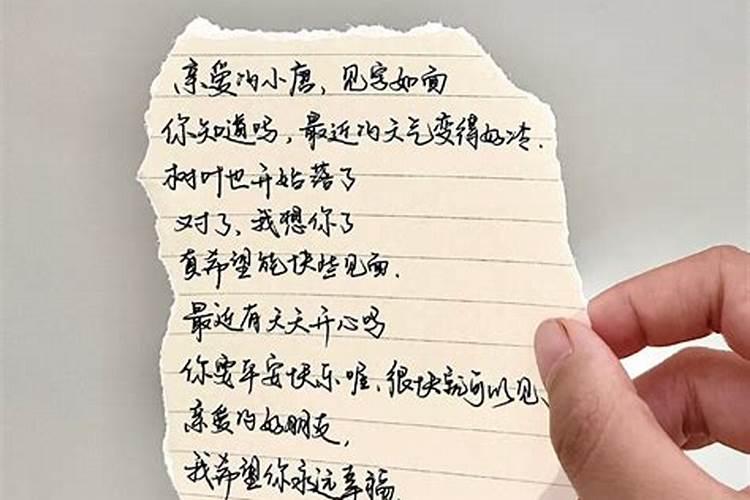 亲爱的小唐，见字如面
你知道吗，最近的天气变得好冷.
树叶也开始落了
对了，我想你了
真希望能快些见面.
最近有天天开心吗
你要平安快乐喔，很快就可以见
亲爱的好朋友，
我希望你永远幸福.